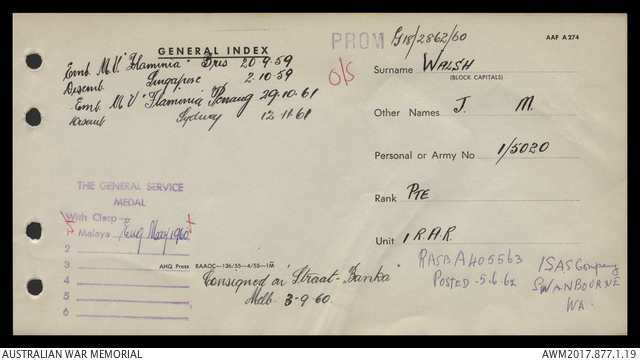 GENERAL INDEX
PROM G18/2862/60
AAF A 274
Emb. M.V. "Flaminia" Bris 20.9.59
Disemb. Singapore 2.10.59
Emb. M V "Flaminia" Penang 29.10.61
Disemb Sydney 12.11.61
O/S
Surname WALSH
(BLOCK CAPITALS)
Other Names J. M.
Personal or Army No 1/5020
Rank PTE
Unit 1 R.A.R.
THE GENERAL SERVICE
MEDAL
With Clasp
1 Malaya
2
3
4
5
6
AHQ Press RAAOC—136/55—4/55—1M
Consigned on "Straat-Banka"
Melb. 3-9-60.
RASB A405563
POSTED .5.6.62
1SAS Company
SWANBOURNE
WA.
AUSTRALIAN WAR MEMORIAL
AWM2017.877.1.19